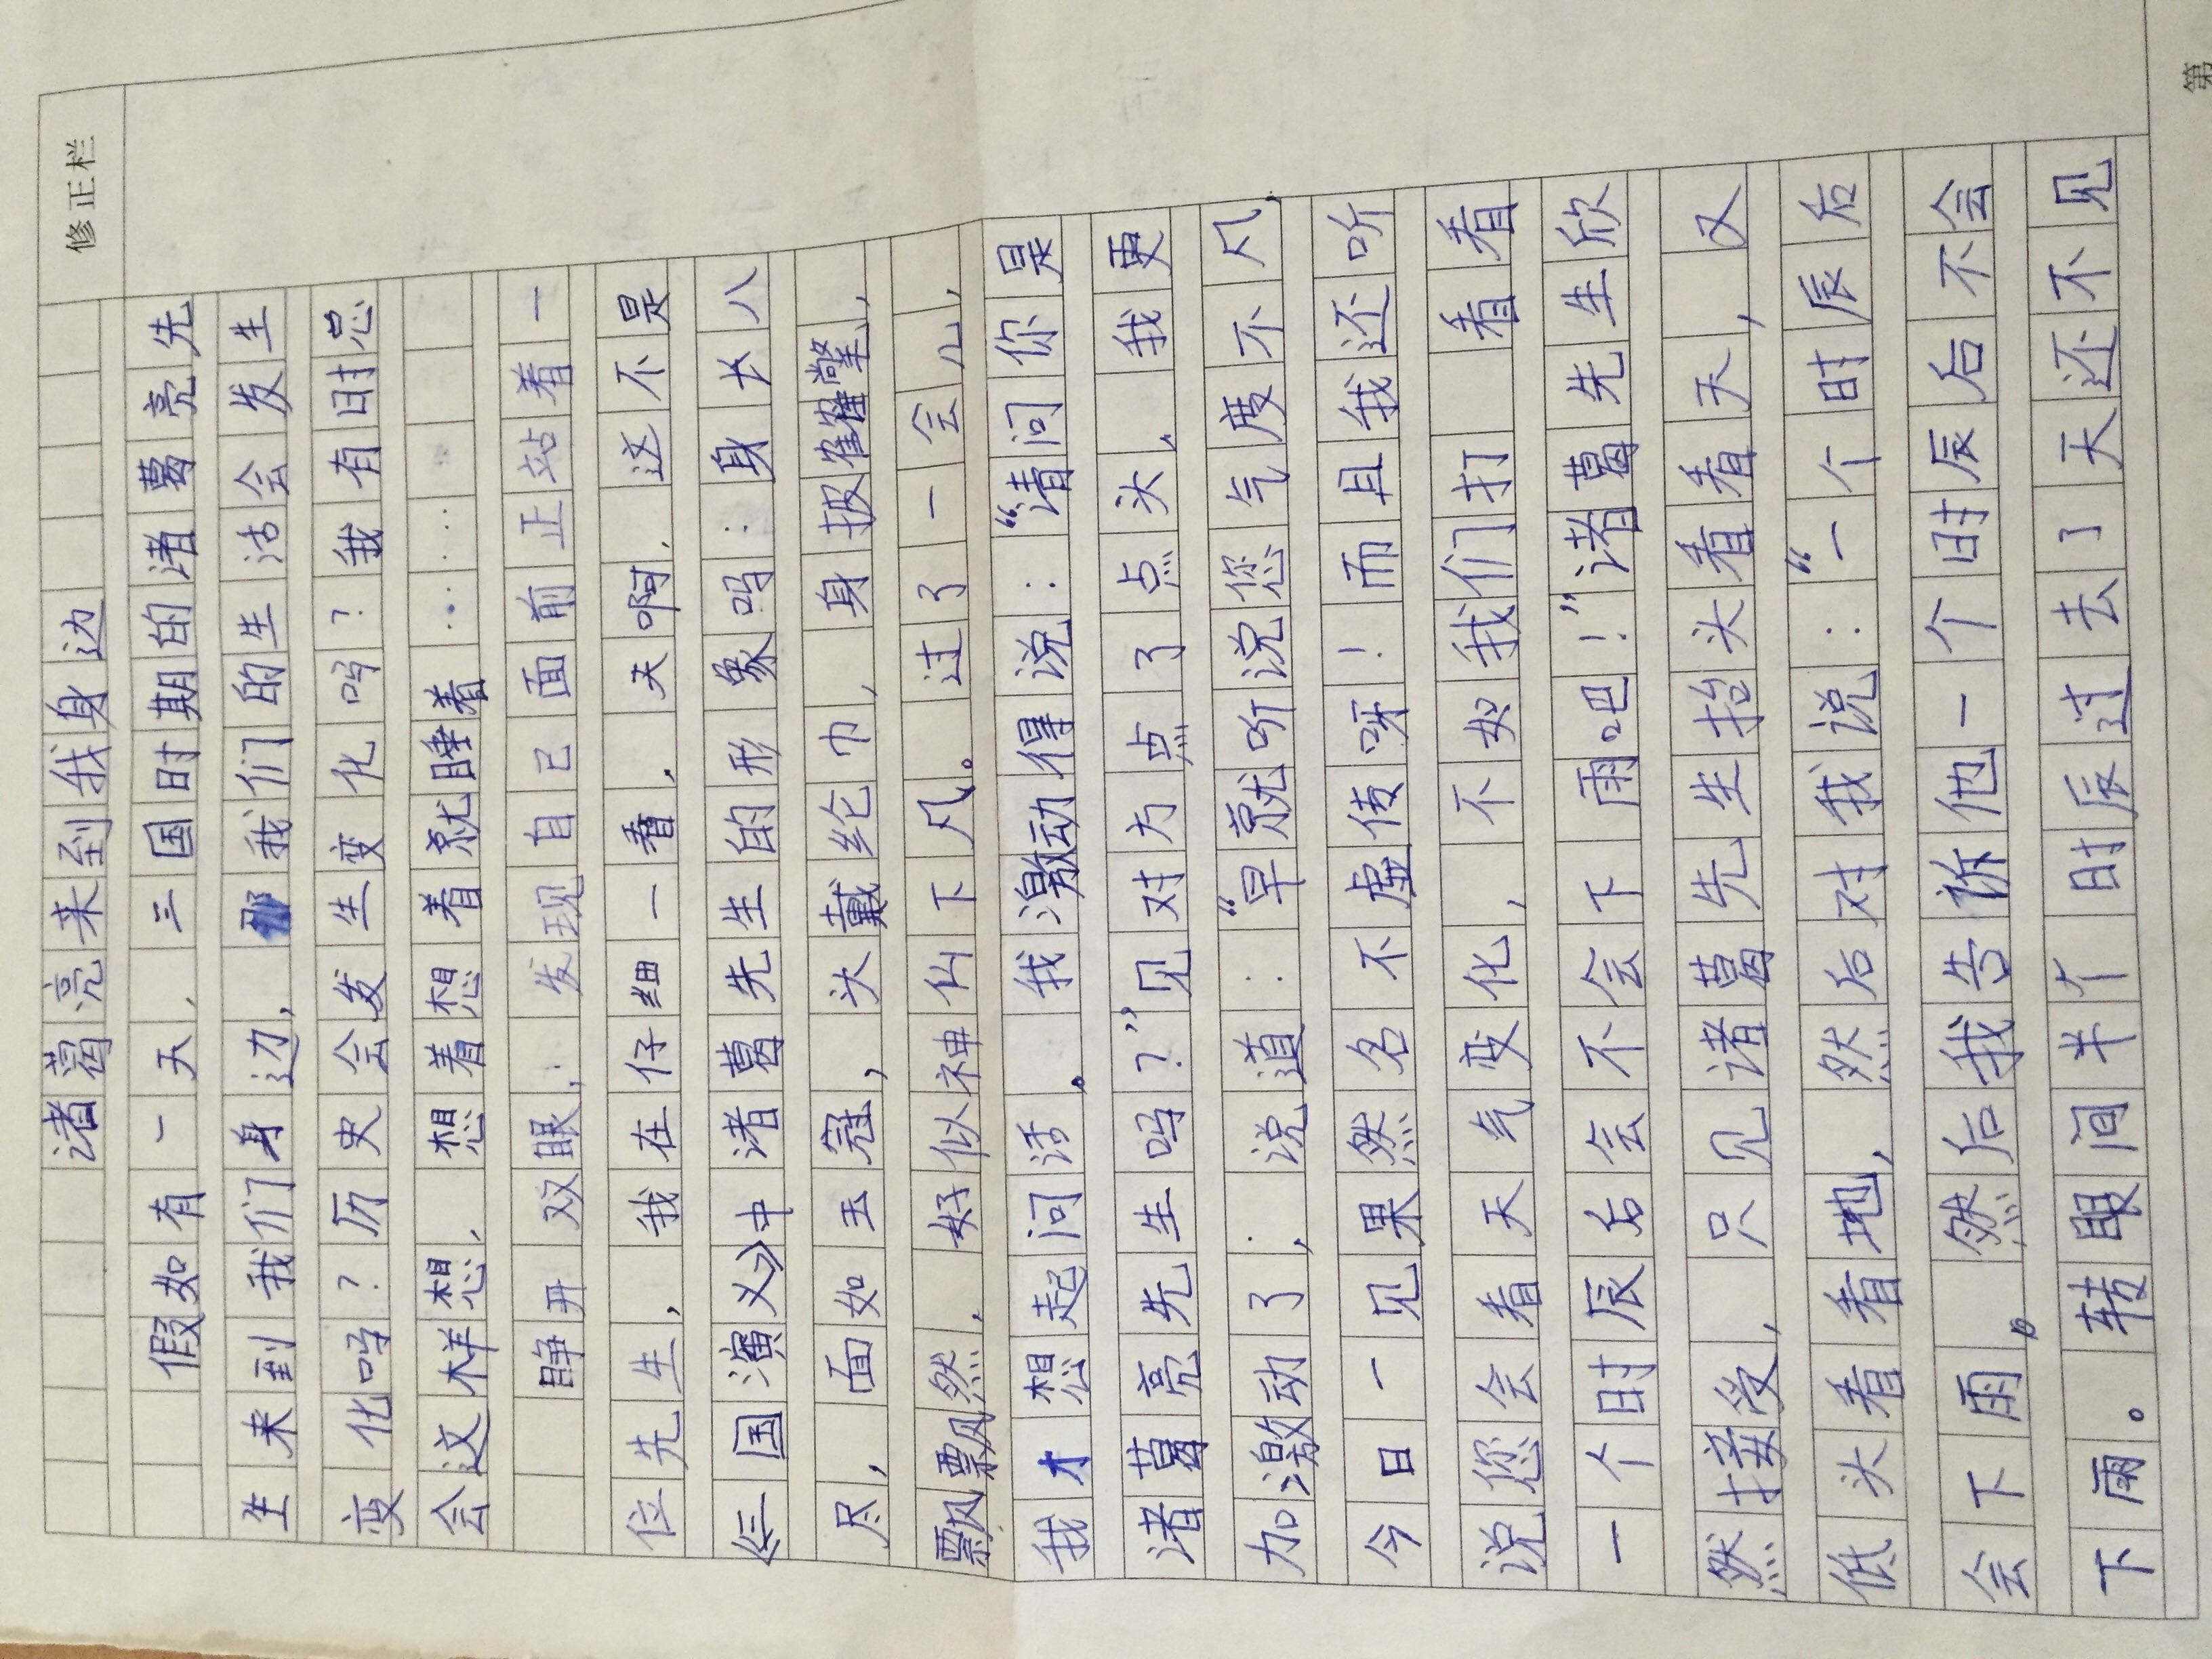 修正栏
诸葛亮来到我身边
假如有一天，三国时期的诸葛亮先
生来到我们身边，那我们的生活会发生
变化吗？历史会发生变化吗？我有时总
会这样想，想着想着就睡着……
睁开双眼，发现自己面前正站着一
位先生，我在仔细一看，天啊，这不是
《三国演义》中诸葛先生的形象吗：身长八
尺，面如玉冠，头戴纶巾，身披鹤氅，
飘飘然，好似神仙下凡。过了一会儿，
我才想起问话。我激动得说：“请问你是
诸葛亮先生吗？”见对方点了点头，我更
加激动了，说道：“早就听说您气度不凡，
今日一见果然名不虚传呀！而且我还听
说您会看天气变化，不如我们打 看看
一个时辰后会不会下雨吧！”诸葛先生欣
然接受，只见诸葛先生抬头看看天，又
低头看看地，然后对我说：“一个时辰后
会下雨。然后我告诉他一个时辰后不会
下雨。转眼间半个时辰过去了天还不见
第